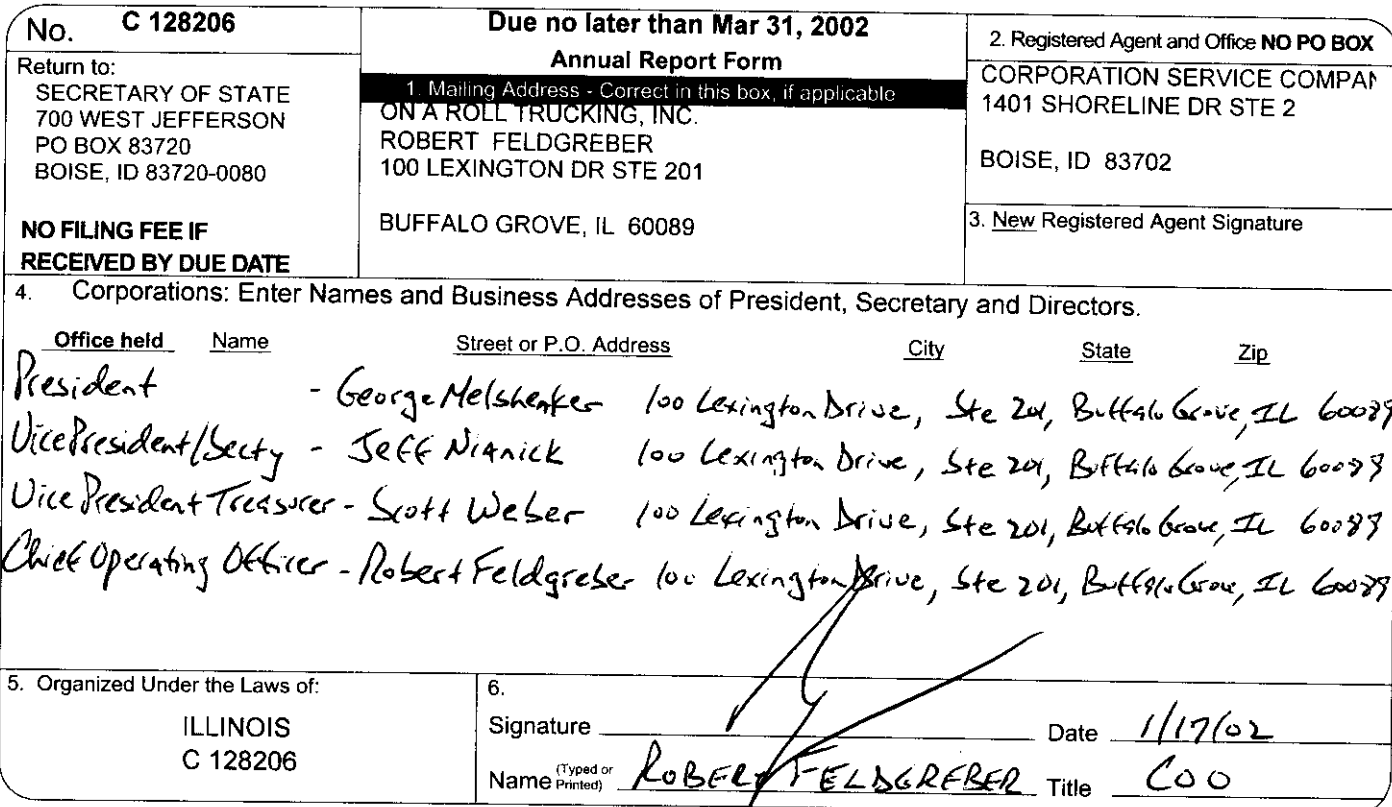 No. C 128206
Return to:
SECRETARY OF STATE
700 WEST JEFFERSON
PO BOX 83720
BOISE, ID 83720-0080
NO FILING FEE IF
RECEIVED BY DUE DATE
Due no later than Mar 31, 2002
Annual Report Form
1. Mailing Address - Correct in this box, if applicable
ON A ROLL TRUCKING, INC.
ROBERT FELDGREBER
100 LEXINGTON DR STE 201
BUFFALO GROVE, IL 60089
2. Registered Agent and Office NO PO BOX
CORPORATION SERVICE COMPAN
1401 SHORELINE DR STE 2
BOISE, ID 83702
3. New Registered Agent Signature
4. Corporations: Enter Names and Business Addresses of President, Secretary and Directors.
Office held Name Street or P.O. Address City State Zip
President - George Melshenker 100 Lexington Drive, Ste 201, Buffalo Grove, IL 60089
Vice President/Secty - Jeff Nianick 100 Lexington Drive, Ste 201, Buffalo Grove, IL 60089
Vice President Treasurer - Scott Weber 100 Lexington Drive, Ste 201, Buffalo Grove, IL 60089
Chief Operating Officer - Robert Feldgreber 100 Lexington Drive, Ste 201, Buffalo Grove, IL 60089
5. Organized Under the Laws of:
ILLINOIS
C 128206
6.
Signature Date 1/17/02
Name (Typed or Printed) ROBERT FELDGREBER Title COO